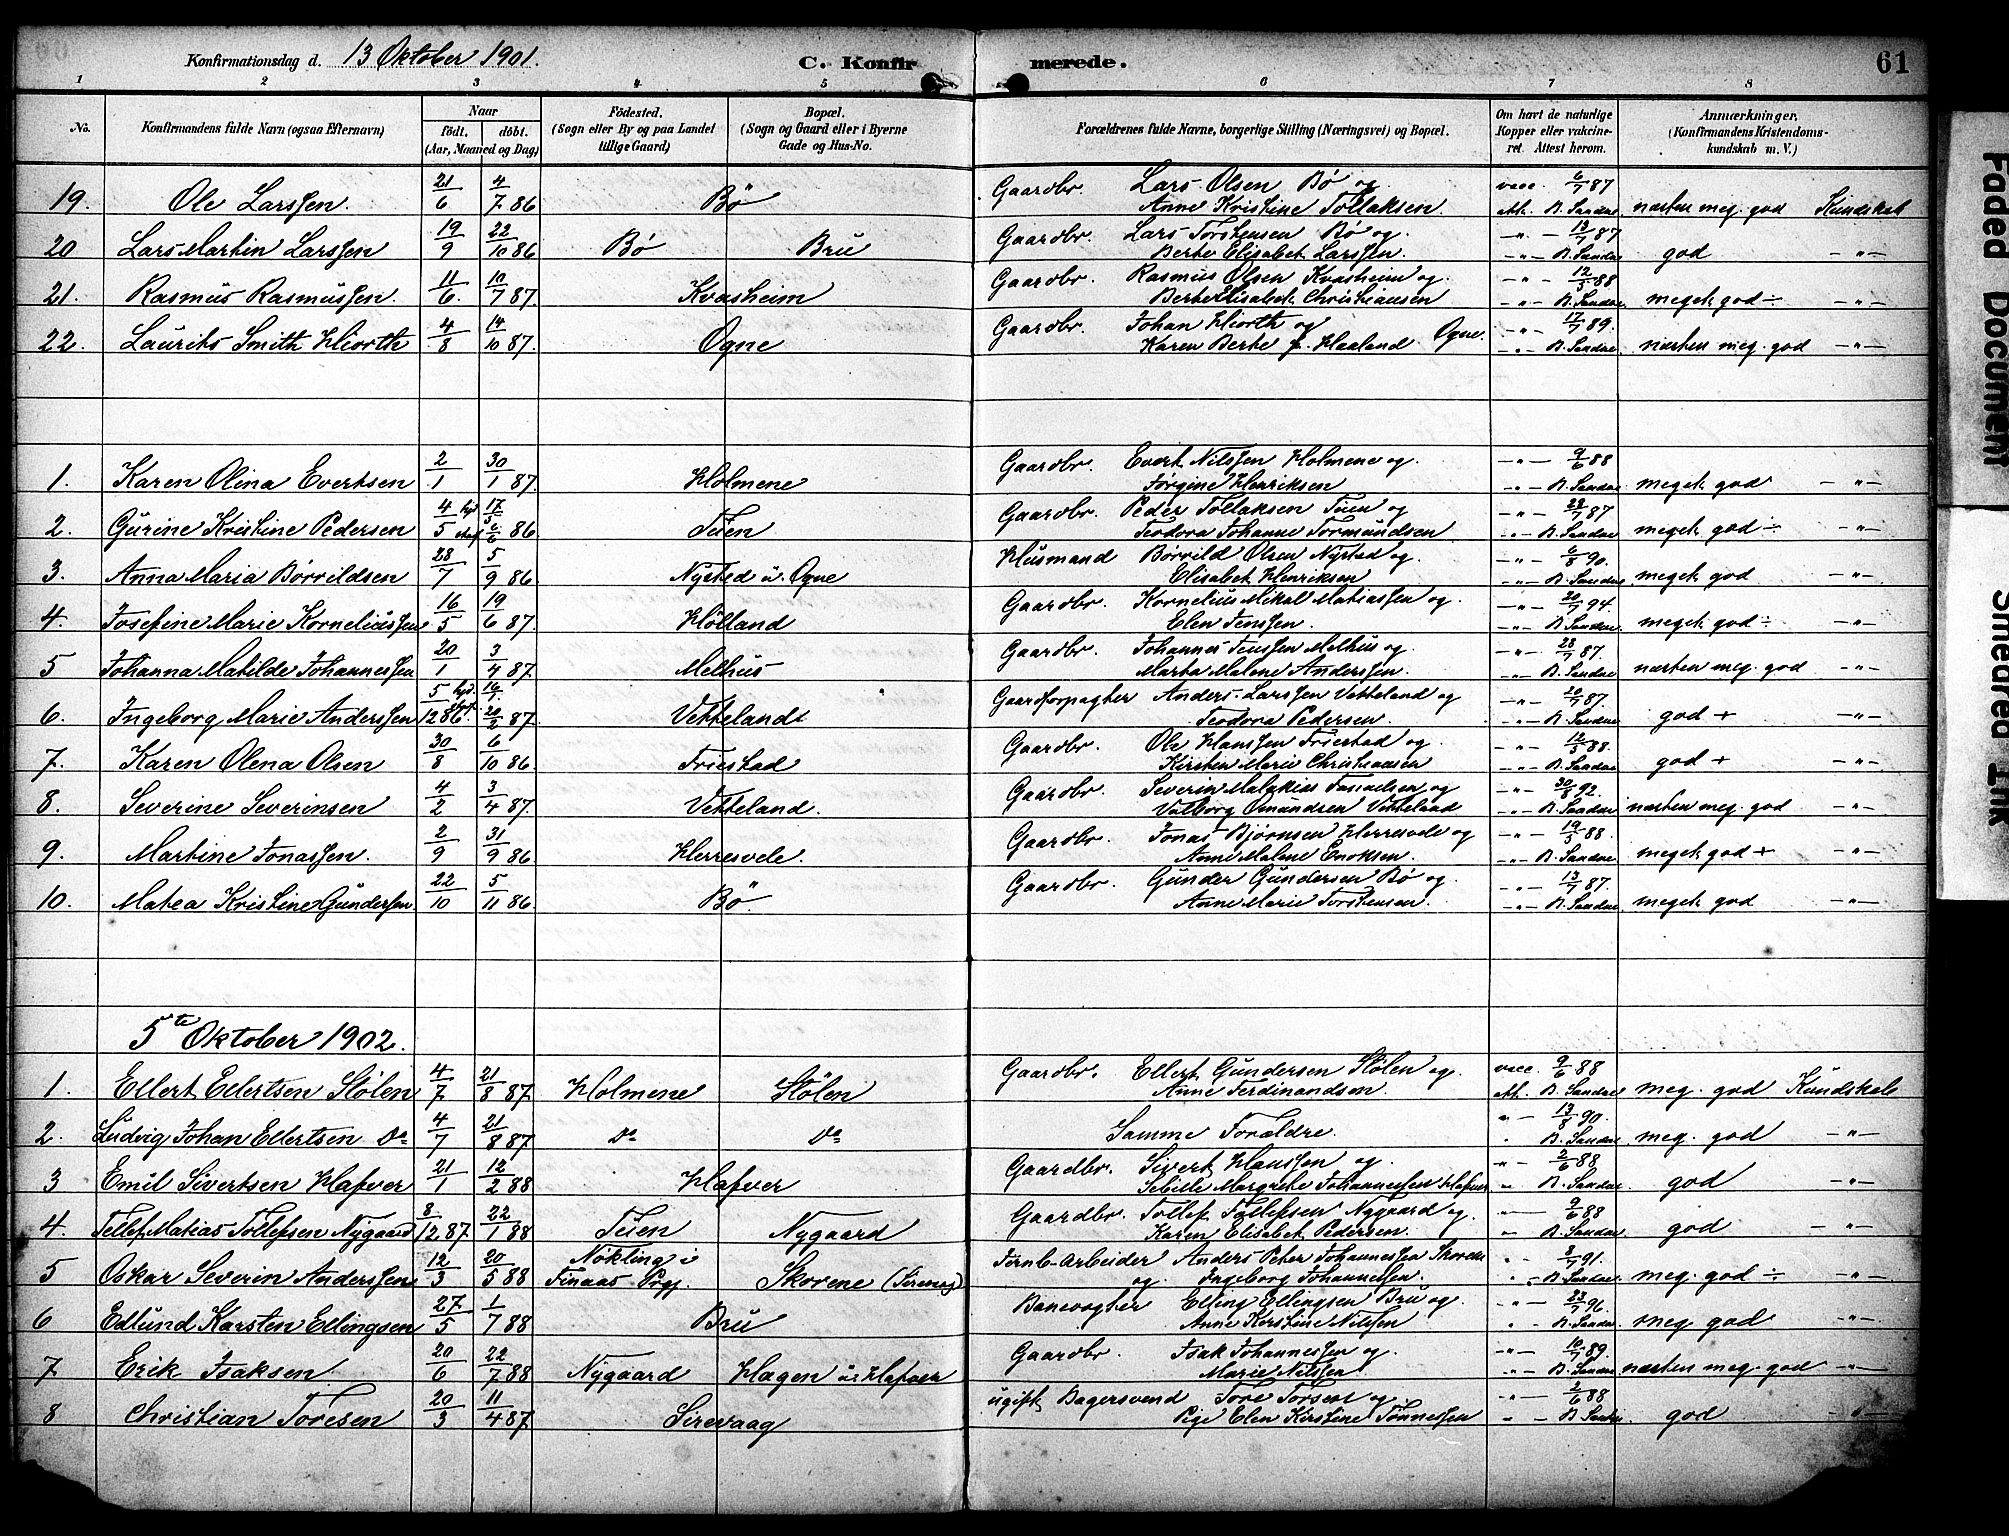 Konfirmationsdag d. 13 Oktober 1901. C. Konfirmerede. 61
1 2 3 4 5 6 7 8
No. Konfirmandens fulde Navn (ogsaa Efternavn) Naar født, døbt. (Aar, Maaned og Dag) Fødested. (Sogn eller By og paa Landet tillige Gaard) Bopæl. (Sogn og Gaard eller i Byerne Gade og Hus-No. Forældrenes fulde Navne, borgerlige Stilling (Næringsvei) og Bopæl. Om havt de naturlige Kopper eller vakcineret. Attest herom. Anmærkninger, (Konfirmandens Kristendomskundskab m. V.)
19. Ole Larssen. 21/6 4/7 86 Bö Gaardbr. Lars Olsen Bö og vacc. 6/7 87
Anne Kristine Tollaksen. att. B. Sandae næsten meg. god Kundskab
20 Lars Martin Larssen 19/9 22/10 86 Bø Bru Gaardbr. Lars Torstensen Bø og -"- 13/7 87
Berte Elisabet Larssen. -"- B. Sandae god -"-
21. Rasmus Rasmussen. 11/6. 10/7 87. Kvasheim Gaardbr. Rasmus Olsen Kvasheim og -"- 12/5 88
Berte Elisabet Christiansen -"- B. Sandae meget god ÷ -"-
22. Laurits Smith Hiorth 4/8 14/10 87. Ogne Gaardbr. Johan Hiorth og -"- 17/7 89.
Karen Berte f. Haaland Ogne. -"- B. Sandae næsten meg. god -"-
1. Karen Olina Evertsen 2/1 30/1 87. Holmene Gaardbr. Evert Nilssen Holmene og -"- 9/6 88
Jørgine Henriksen -"- B. Sandae meget god -"-
2. Gurine Kristine Pedersen 4/5 17/5 6/6 86 Tuen Gaardbr. Peder Tollaksen Tuen og -"- 23/7 87
Teodora Johanne Tormundsen -"- B. Sandae meget god ÷ -"-
3. Anna Maria Børrildsen 28/7 5/9 86 Nysted u. Ogne Husmand Børrild Olsen Nystad og -"- 6/8 90.
Elisabet Henriksen -"- B. Sandae meget god -"-
4. Josefine Marie Korneliussen 16/5 19/6 87. Hølland Gaardbr. Kornelius Mikal Matiassen og -"- 20/7 94.
Elen Jenssen. -"- B. Sandae meget god ÷ -"-
5 Johanna Matilde Johannessen 20/1 3/4 87 Melhus Gaardbr. Johannes Jenssen Melhus og -"- 28/7 87.
Marta Malene Anderssen. -"- B. Sandae næsten meg. god -"-
6. Ingeborg Marie Anderssen 5/12 86 16/1 20/2 87. Vetteland Gaardforpagter Anders Larssen Vetteland og -"- 20/7 87
Teodora Pedersen. -"- B. Sandae god + -"-
7. Karen Olena Olsen 30/8 6/10 86 Friestad Gaardbr. Ole Hanssen Friestad og -"- 12/5 88.
Kirsten Marie Christiansen -"- B. Sandae god + -"-
8. Severine Severinsen 4/2 3/4 87. Vetteland. Gaardbr. Severin Malakias Tønnesen og -"- 30/8 92.
Valborg Omundsen Vetteland -"- B. Sandae næsten meg. god -"-
9. Martine Jonassen. 2/9 31/9 86 Herresvele. Gaardbr. Jonas Bjørnsen Herresvele og -"- 19/5 88.
Anne Malene Enoksen. -"- B. Sandae meget god + -"-
10. Matea Kristine Gundersen 22/10 5/11 86 Bö. Gaardbr. Gunder Gundersen Bø og -"- 13/7 87.
Anne Marie Torstensen. -"- B. Sandae meget god -"-
5te Oktober 1902.
1. Ellert Ellertsen Stølen 4/7 21/8 87 Holmene Stølen Gaardbr. Ellert Gundersen Stølen og vacc. 9/6 88
Anne Ferdinandsen. att. B. Sandae meg. god Kundskab
2. Ludvig Johan Ellertsen Do 4/7 21/8 87 Do Do Samme Forældre. " - 13/8 90.
" B. Sandae meg. god -"-
3 Emil Sivertsen Hafver 21/1 12/2 88 Hafver Gaardbr. Sivert Hanssen og " - 2/6 88
Sebille Margrete Johannessen Hafver " B. Sandae god -"-
4. Tollef Matias Tollefsen Nygaard 8/12 87 22/1 88 Tuen Nygaard Gaardbr. Tollef Tollefsen Nygaard og " - 9/6 88
Karen Elisabet Pedersen. " B. Sandae god -"-
5 Oskar Severin Anderssen 12/3 20/5 88 Nøkling i Finaas Pgj. Skorene (Sirevåg) Jernb-Arbeider Anders Peter Johannessen Skorene " - 3/7 91.
og Ingeborg Johannessen. " - B. Sandae meg. god ÷ -"-
6 Edlund Karsten Ellingsen 27/5 1/7 88 Bru Banevogter Elling Ellingsen Bru og " - 23/7 96.
Anne Kirstine Nilssen " B. Sandae meg. god -"-
7 Erik Isaksen 20/6 22/7 88 Nygaard Hagen u. Hafver Gaardbr. Isak Johannessen og " - 10/7 89.
Marie Nilssen " B. Sandae næsten meg. god -"-
8 Christian Toresen 20/3 11/4 87 Sirevaag ugift Bagersvend Tore Torsen og " - 2/6 88
Pige Elen Kirstine Tønnessen " - B. Sandae god -"-
Faded Document
Smeared Ink